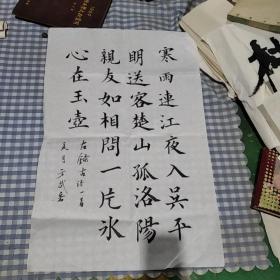 寒雨連江夜入吳平
明送客楚山孤洛陽
親友如相問一片冰
心在玉壺
右錄古詩一首